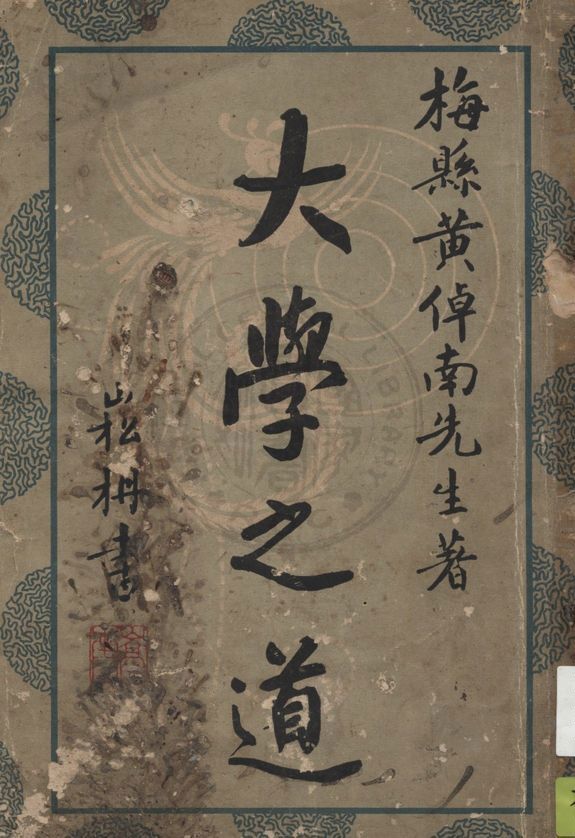 梅縣黃倬南先生著
大學之道
崧枬書
LIBRARY